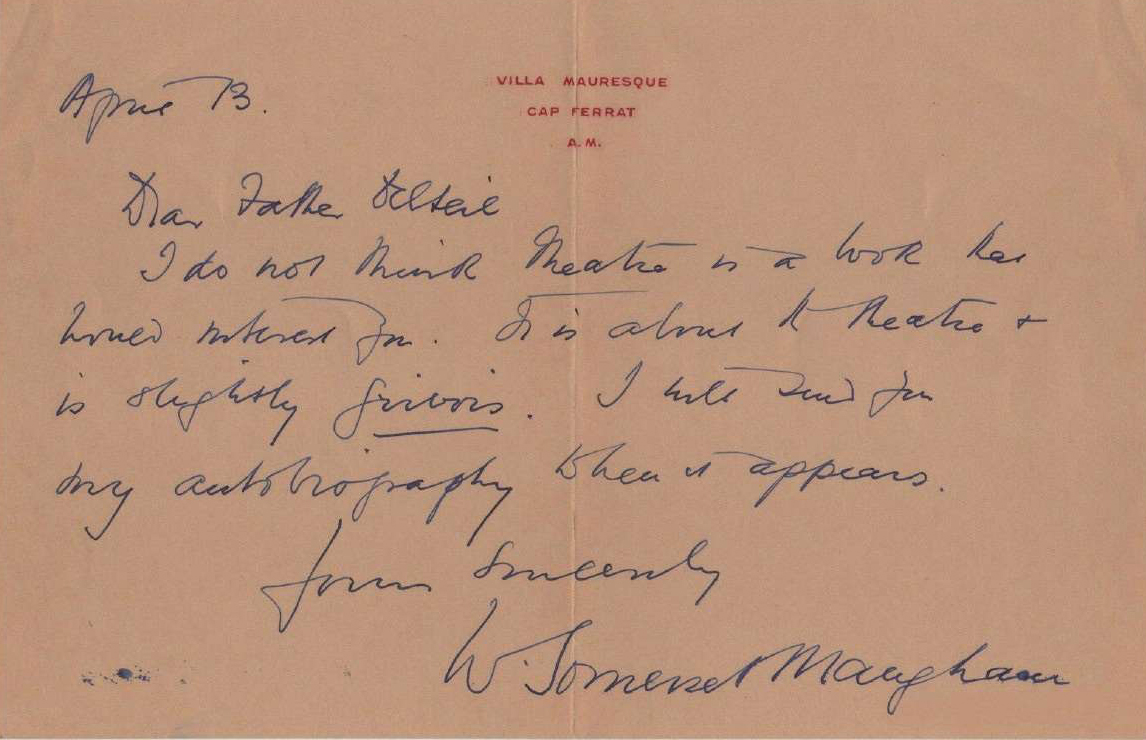 VILLA MAURESQUE
CAP FERRAT
A.M.
April 13.
Dear Father Delteil
I do not think Theatre is a book that
would interest you. It is about the theatre +
is slightly grivois. I will send you
my autobiography when it appears.
Yours sincerely
W. Somerset Maugham